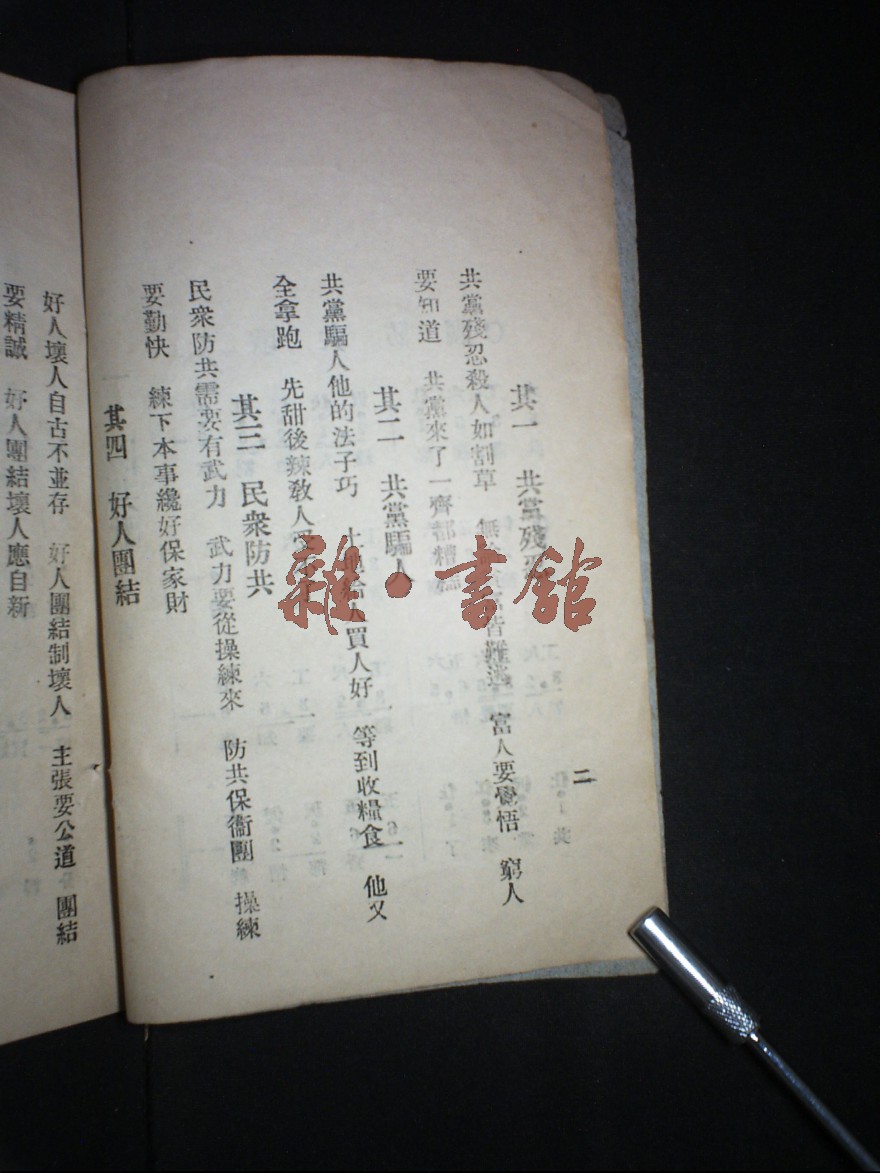 二
其一 共黨残
共黨殘忍殺人如割草 無 皆難逃 富人要覺悟 窮人
要知道 共黨來了一齊都糟
其二 共黨騙人
共黨騙人他的法子巧 土地給人買人好 等到收糧食 他又
全拿跑 先甜後辣教人受
其三 民衆防共
民衆防共需要有武力 武力要從操練來 防共保衞團 操練
要勤快 練下本事纔好保家財
其四 好人團結
好人壞人自古不並存 好人團結制壞人 主張要公道 團結
要精誠 好人團結壞人應自新
雜·書館